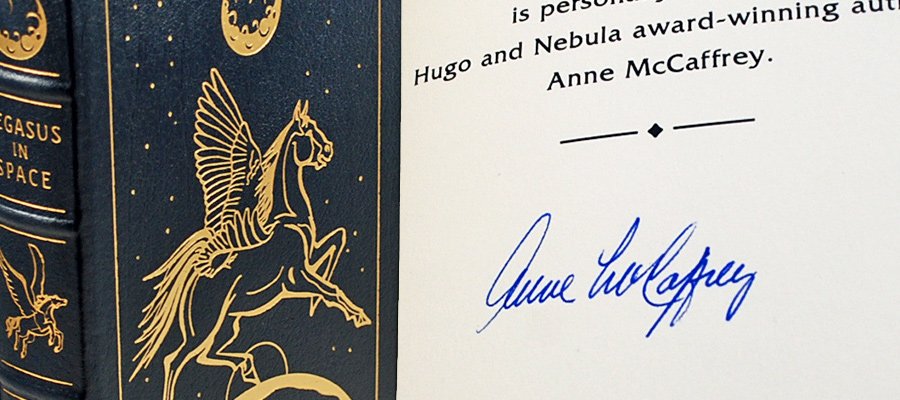 EGASUS
IN
SPACE
is person
Hugo and Nebula award-winning aut
Anne McCaffrey.
Anne McCaffrey